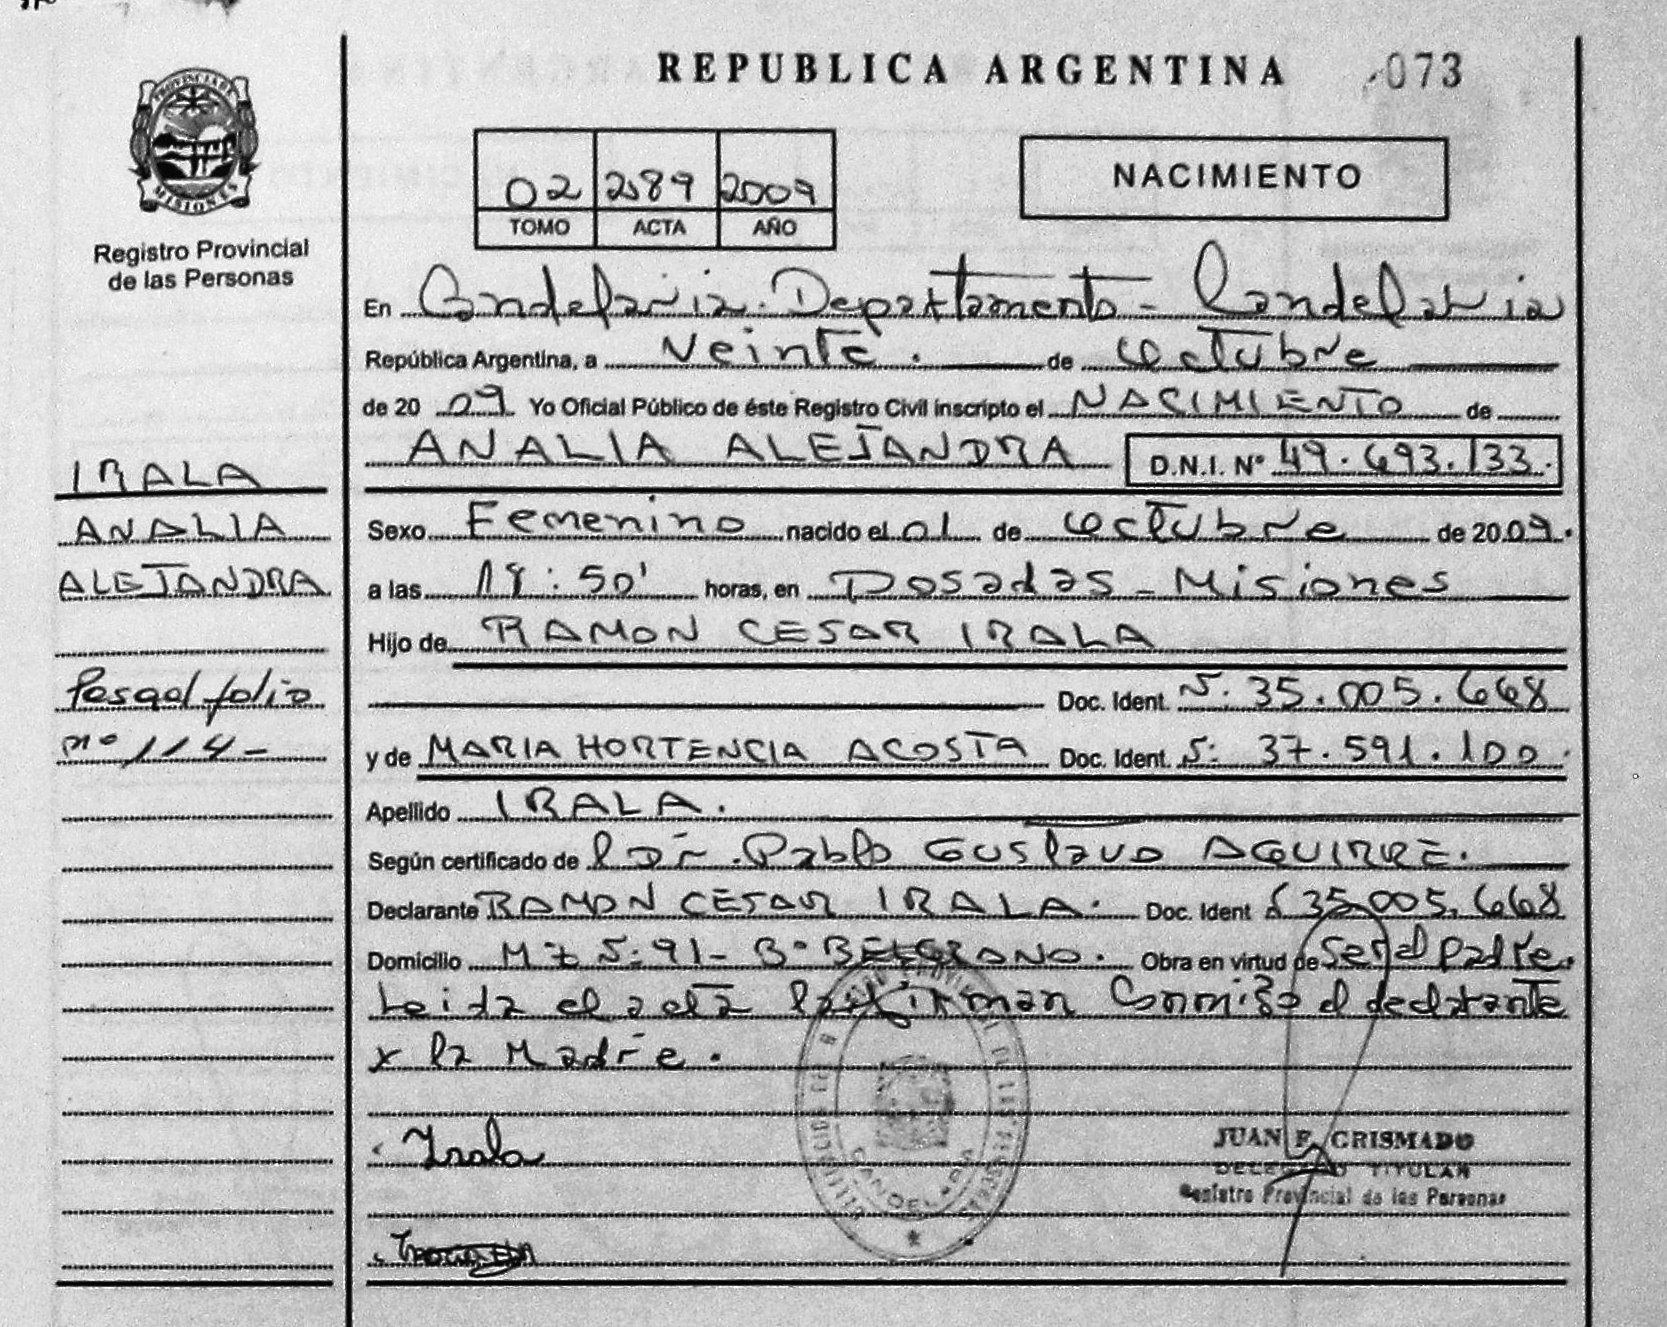 REPUBLICA ARGENTINA 073
PROVINCIA DE
MISIONES
Registro Provincial
de las Personas
02 289 2009
TOMO ACTA AÑO
NACIMIENTO
En Candelaria. Departamento - Candelaria
República Argentina, a Veinte. de Octubre
de 20 09 Yo Oficial Público de éste Registro Civil inscripto el NACIMIENTO de
ANALIA ALEJANDRA D.N.I. Nº 49.693.133.
IRALA
ANALIA
ALEJANDRA
folio
nº 114-
Sexo Femenino nacido el 01 de Octubre de 2009.
a las 18:50' horas, en Posadas - Misiones
Hijo de RAMON CESAR IRALA
Doc. Ident. Nº 35.005.668
y de MARIA HORTENCIA ACOSTA Doc. Ident. Nº 37.591.100.
Apellido IRALA.
Según certificado de l Dr. Pablo Gustavo AGUIRRE.
Declarante RAMON CESAR IRALA. Doc. Ident 35.005.668
Domicilio Mz Nº 91 - Bº BELGRANO. Obra en virtud de Ser el padre.
Leida el acta la firman Conmigo el declarante
y la Madre.
Irala
CANDELARIA
JUAN F. CRISMADO
DELEGADO TITULAR
Registro Provincial de las Personas